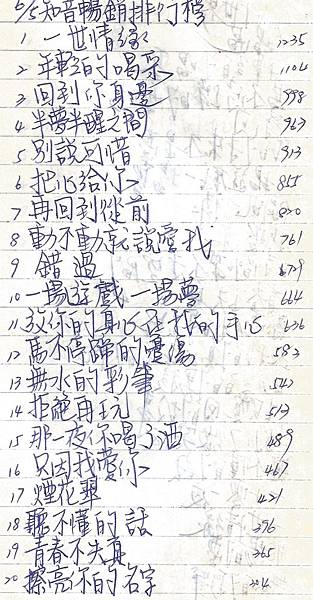 6/5 知音暢銷排行榜
1 一世情緣 1235
2 年輕的喝采 1104
3 回到你身邊 998
4 半夢半醒之間 963
5 別說可惜 913
6 把心給你 855
7 再回到從前 820
8 動不動就說愛我 761
9 錯過 679
10 一場遊戲一場夢 664
11 放你的真心在我的手心 636
12 馬不停蹄的憂傷 583
13 無水的彩筆 542
14 拒絕再玩 513
15 那一夜你喝了酒 489
16 只因我愛你 467
17 煙花翠 421
18 聽不懂的話 396
19 青春不失真 365
20 擦亮你的名字 324